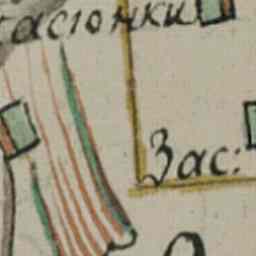 гасюнки
Зас: